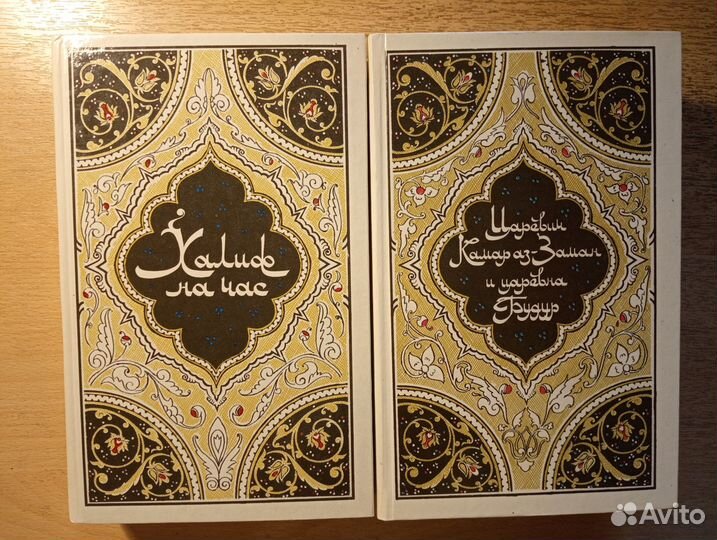 Халиф
на час
Царевич
Камар аз-Заман
и царевна
Будур
Avito